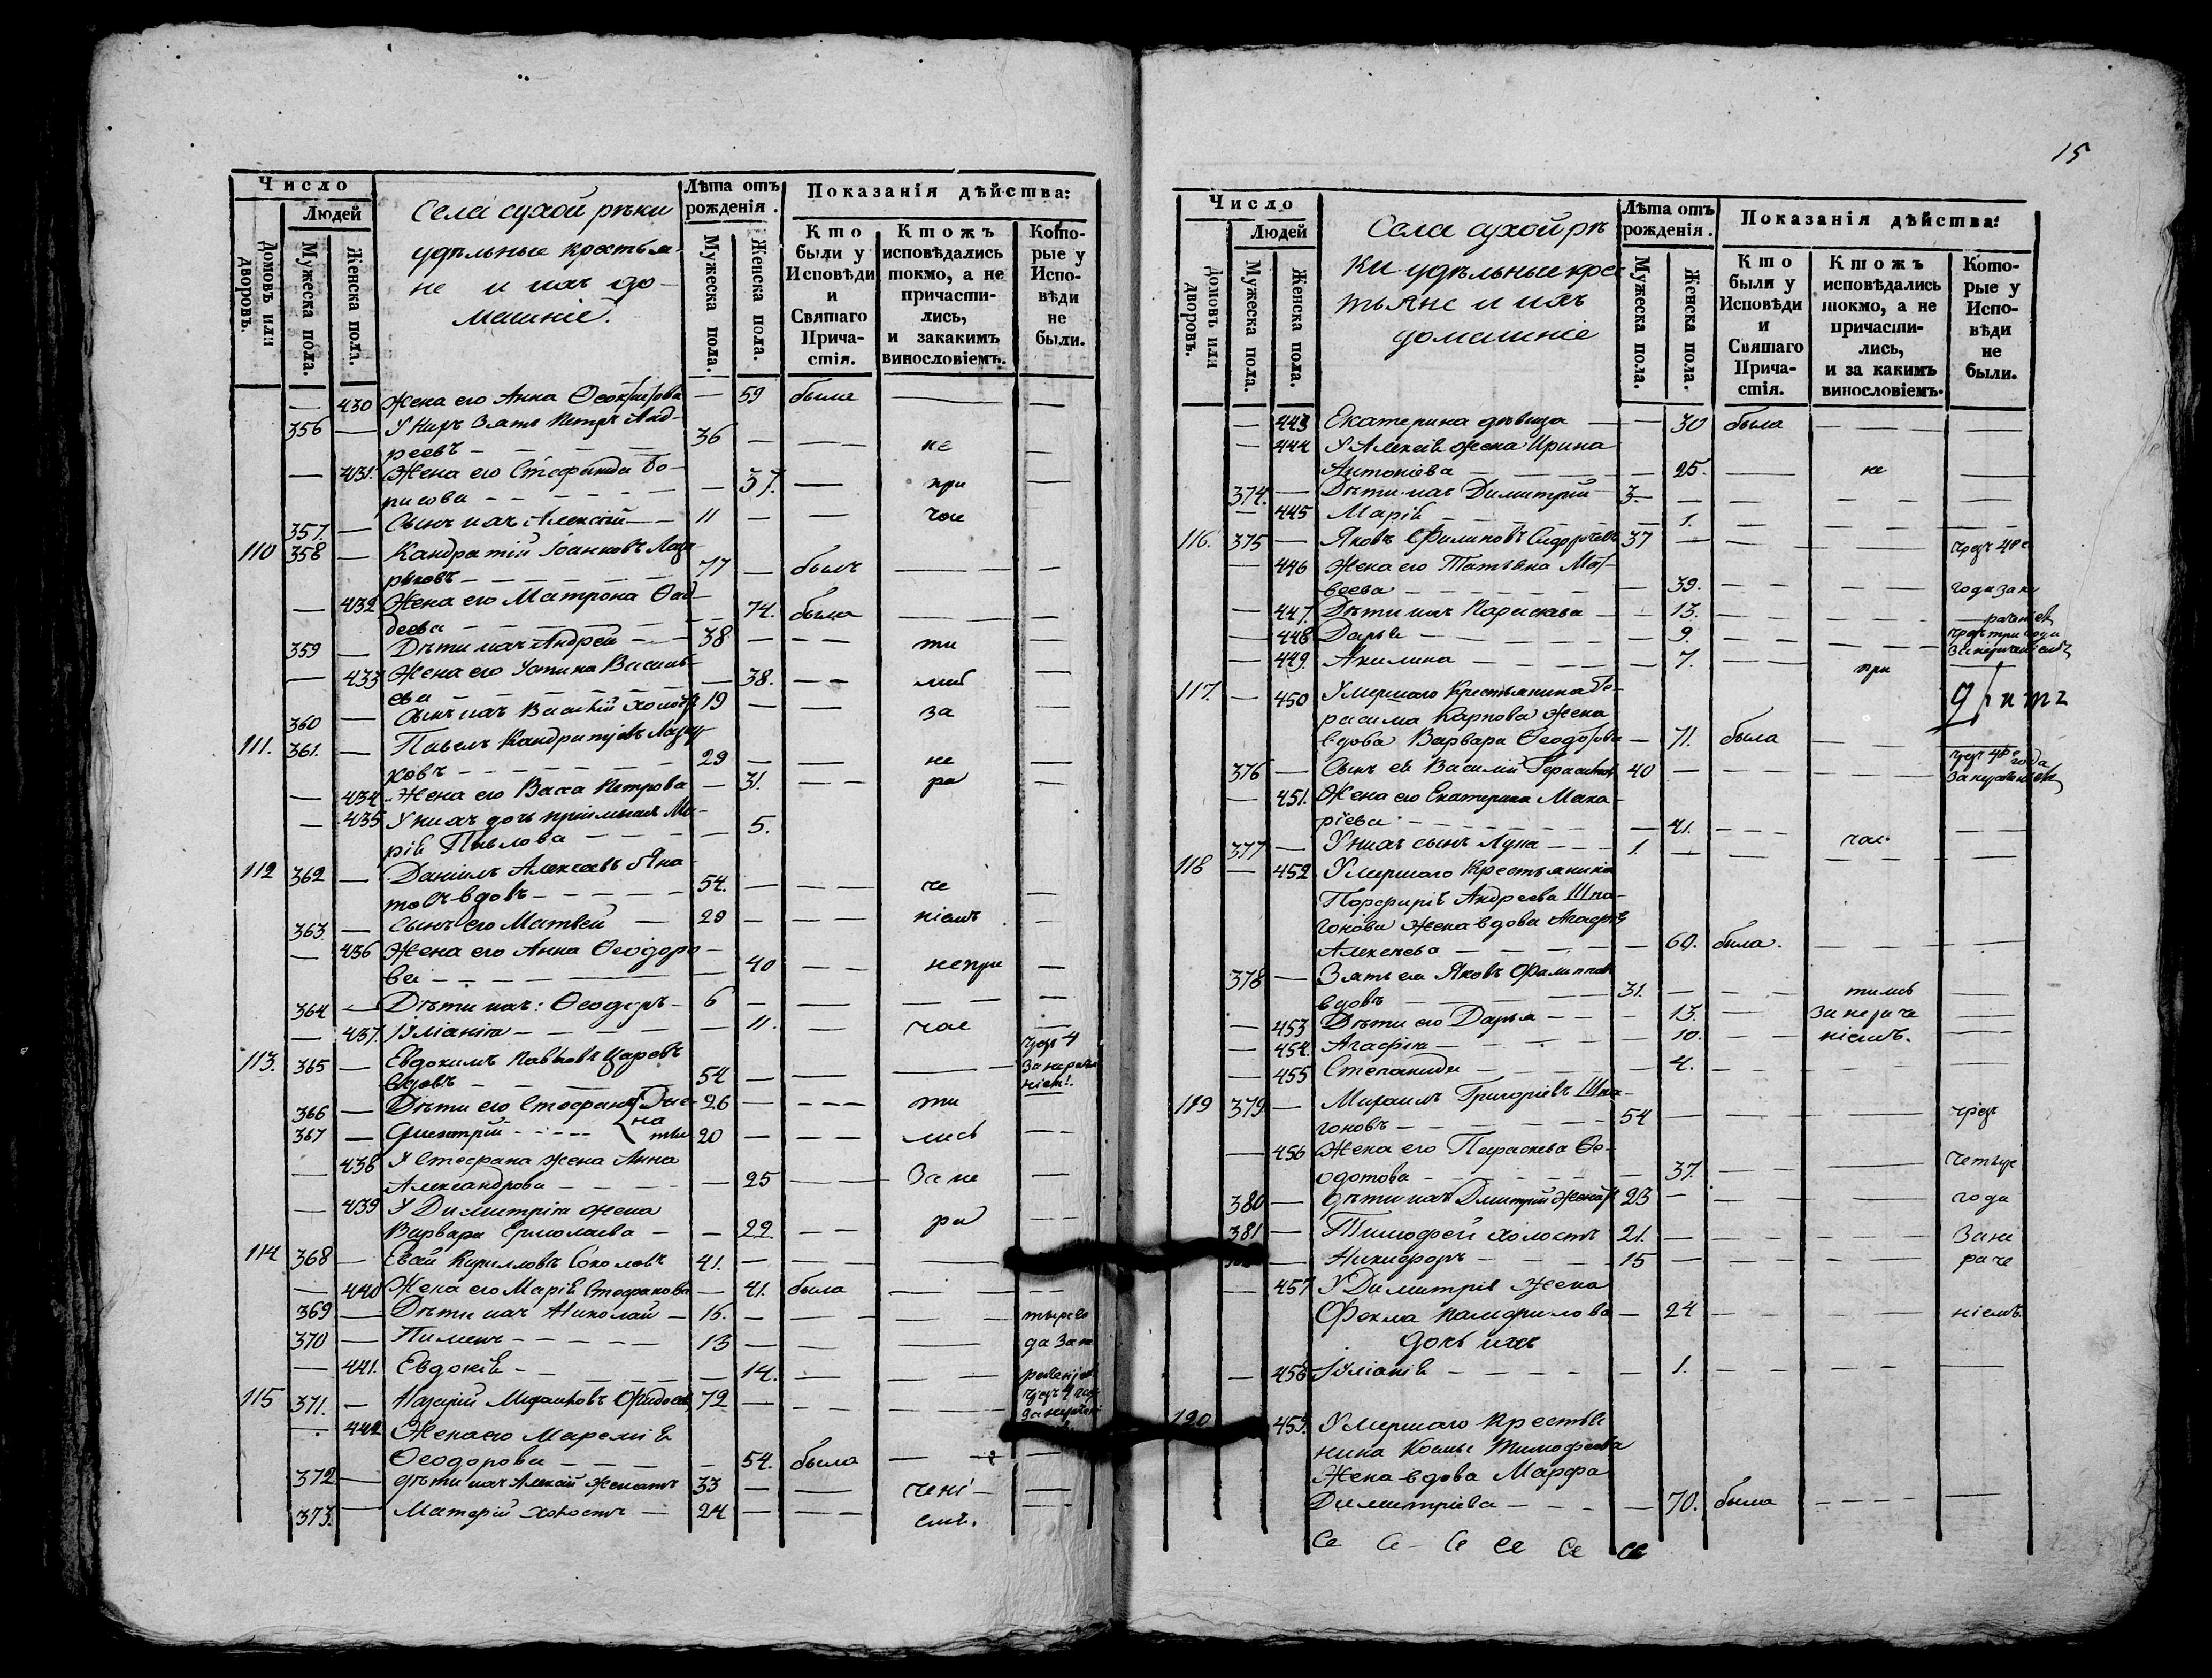 Число
Людей
Домовъ или дворовъ.
Мужеска пола.
Женска пола.
Села сухой рѣки
удѣльные крестья-
не и ихъ до-
машніе.
Лѣта отъ рожденія.
Мужеска пола.
Женска пола.
Показанія дѣйства:
Кто были у Исповѣди и Святаго Причастія.
Ктожъ исповѣдались токмо, а не причасти-лись, и закакимъ винословіемъ.
Кото-рые у Испо-вѣди не были.
— 430 Жена его Анна — 59 была — —
356 — У нихъ Зять Петръ Анд-
реевъ — 36 — — не —
— 431. Жена его Стефанида Бо-
рисова — — 37. — при —
357. — Сынъ ихъ Алексѣй — 11 — — час
110 358 — Кандратій Іоанновъ Лаза-
ревъ — 77 — былъ — —
— 432 Жена его Матрона Ѳад-
деева — — 74. была — —
359 — Дѣти ихъ Андрей — 38 — — ти —
— 433 Жена его Устина Василь-
ева — — 38. — —
360 — Сынъ ихъ Василій холостъ 19 — — за
111. 361. — Павелъ Кандратіевъ
29 — — не —
— 434 Жена его Васса Петрова — 31. — ра —
— 435 У нихъ дочь пріимная Ма-
рія Павлова — — 5.
112 362 — Даніилъ Алексѣевъ
вдовъ — 54. — — че —
363. — Сынъ его Матвей — 29 — — ніемъ —
— 436 Жена его Анна Ѳеодоро-
ва — — 40 — непри —
364 — Дѣти ихъ: Ѳеодоръ — 6 — — — —
— 437. Іуліанія — — 11. — час —
113. 365 — Евдокимъ Павловъ Царевъ
вдовъ — 54 — — — чрез 4 за нераче ніем.
366 — Дѣти его Стефанъ } Же- 26 — — ти
367 — Димитрій — } на ты 20 — — лись —
— 438 У Стефана жена Анна
Александрова — — 25 — За не —
— 439 У Димитрія жена
Варвара Ермолаева — — 22. — ра —
114 368 — Кирилловъ Соколовъ 41. — — —
— 440 Жена его Марія Стефанова — 41. была — —
369 — Дѣти ихъ Николай — 15. — — —
370 — Пименъ — 13 — — — да За не
— 441. Евдокія — — 14.
115 371. — Назарій 72 — — —
— 442 Жена его
Ѳеодорова — — 54. была — —
372 — дѣти ихъ Алексѣй женатъ 33 — — чені —
373. — холостъ — 24 — — емъ.
15
Число
Людей
Домовъ или дворовъ.
Мужеска пола.
Женска пола.
Села сухой рѣ
ки удѣльные крес
тьяне и ихъ
домашніе
Лѣта отъ рожденія.
Мужеска пола.
Женска пола.
Показанія дѣйства:
Кто были у Исповѣди и Святаго Прича-стія.
Ктожъ исповѣдались токмо, а не причасти-лись, и за какимъ винословіемъ.
Кото-рые у Испо-вѣди не были.
— 443 Екатерина дѣвица — — 30 была — —
— 444 У Алексѣя жена Ирина
Антоніева — — 25. — не —
374. — Дѣти ихъ Димитрій — 3 — — — —
— 445 Марія — — 1. — — —
116. 375 — Яковъ Филиповъ 37 — — — чрез 4ре
— 446 Жена его Татьяна Мат-
веева — — 39. — — года за не
— 447. Дѣти ихъ Параскева — — 13. — —
— 448 Дарья — — 9. — — чрез три года
— 449. Акилина — — 7. — при —
117. — 450 Умершаго Крестьянина Ге-
расима Карпова жена
вдова Варвара Ѳеодотова — 71. была — —
376 — Сынъ ея Василій Герасимов 40 — — — чрез 4ре года
— 451. Жена его Екатерина Мака-
рiева — — 41. — — —
377 — У них сынъ Лука — 1. — — час
118 — 452 Умершаго Крестьянина
Порфирія Андреева Шпа-
гонова жена вдова Агафія
Алексеева — — 60. была. — —
378 — Зять ея Яковъ Филиппов
вдовъ — 31. — — тились —
— 453 Дѣти его Дарья — — 13. — За нераче —
— 454. Агафія — — 10. — ніемъ. —
— 455 Степанида — — 4. — — —
119 379 — Михаилъ Григоріевъ Шпа-
гоновъ — 54 — — — чрез
— 456 Жена его Параскева Ѳе-
одотова — — 37. — — четыре
380 — дѣти ихъ Дмитрій женатъ 23 — — — года
381 — Тимофей холостъ 21. — — — За не
— Никифоръ — 15 — — — раче
— 457 У Димитрія жена
Фекла Памфилова — 24 — — ніемъ
дочь ихъ
— 458 Іуліанія — — 1. — — —
120 — 459. Умершаго Крестья
нина Косьмы Тимофеева
жена вдова Марфа
Димитріева — — 70. была — —
Се Се Се Се Се Се